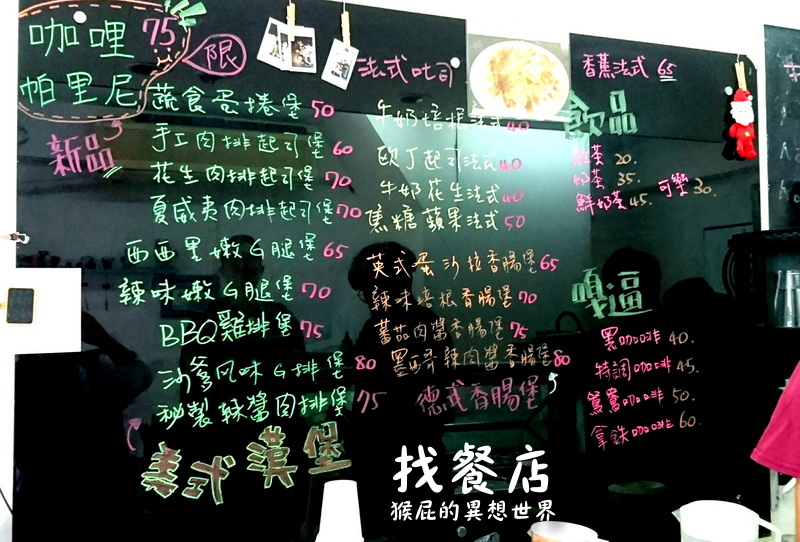 咖哩 75
帕里尼
限
新品
蔬食蛋捲堡 50
手工肉排起司堡 60
花生肉排起司堡 70
夏威夷肉排起司堡 70
西西里嫩G腿堡 65
辣味嫩G腿堡 70
BBQ雞排堡 75
沙爹风味G排堡 80
秘製辣醬肉排堡 75
美式漢堡
法式吐司
牛奶培根法式 40
歐丁起司法式 40
牛奶花生法式 40
焦糖蘋果法式 50
英式蛋沙拉香腸堡 65
辣味培根香腸堡 70
蕃茄肉醬香腸堡 75
墨西哥辣肉醬香腸堡 80
德式香腸堡
香蕉法式 65
飲品
紅茶 20.
奶茶 35.
鮮奶茶 45. 可樂 30.
嘎逼
黑咖啡 40.
特調咖啡 45.
鴛鴦咖啡 50.
拿鉄咖啡 60.
找餐店
猴屁的異想世界